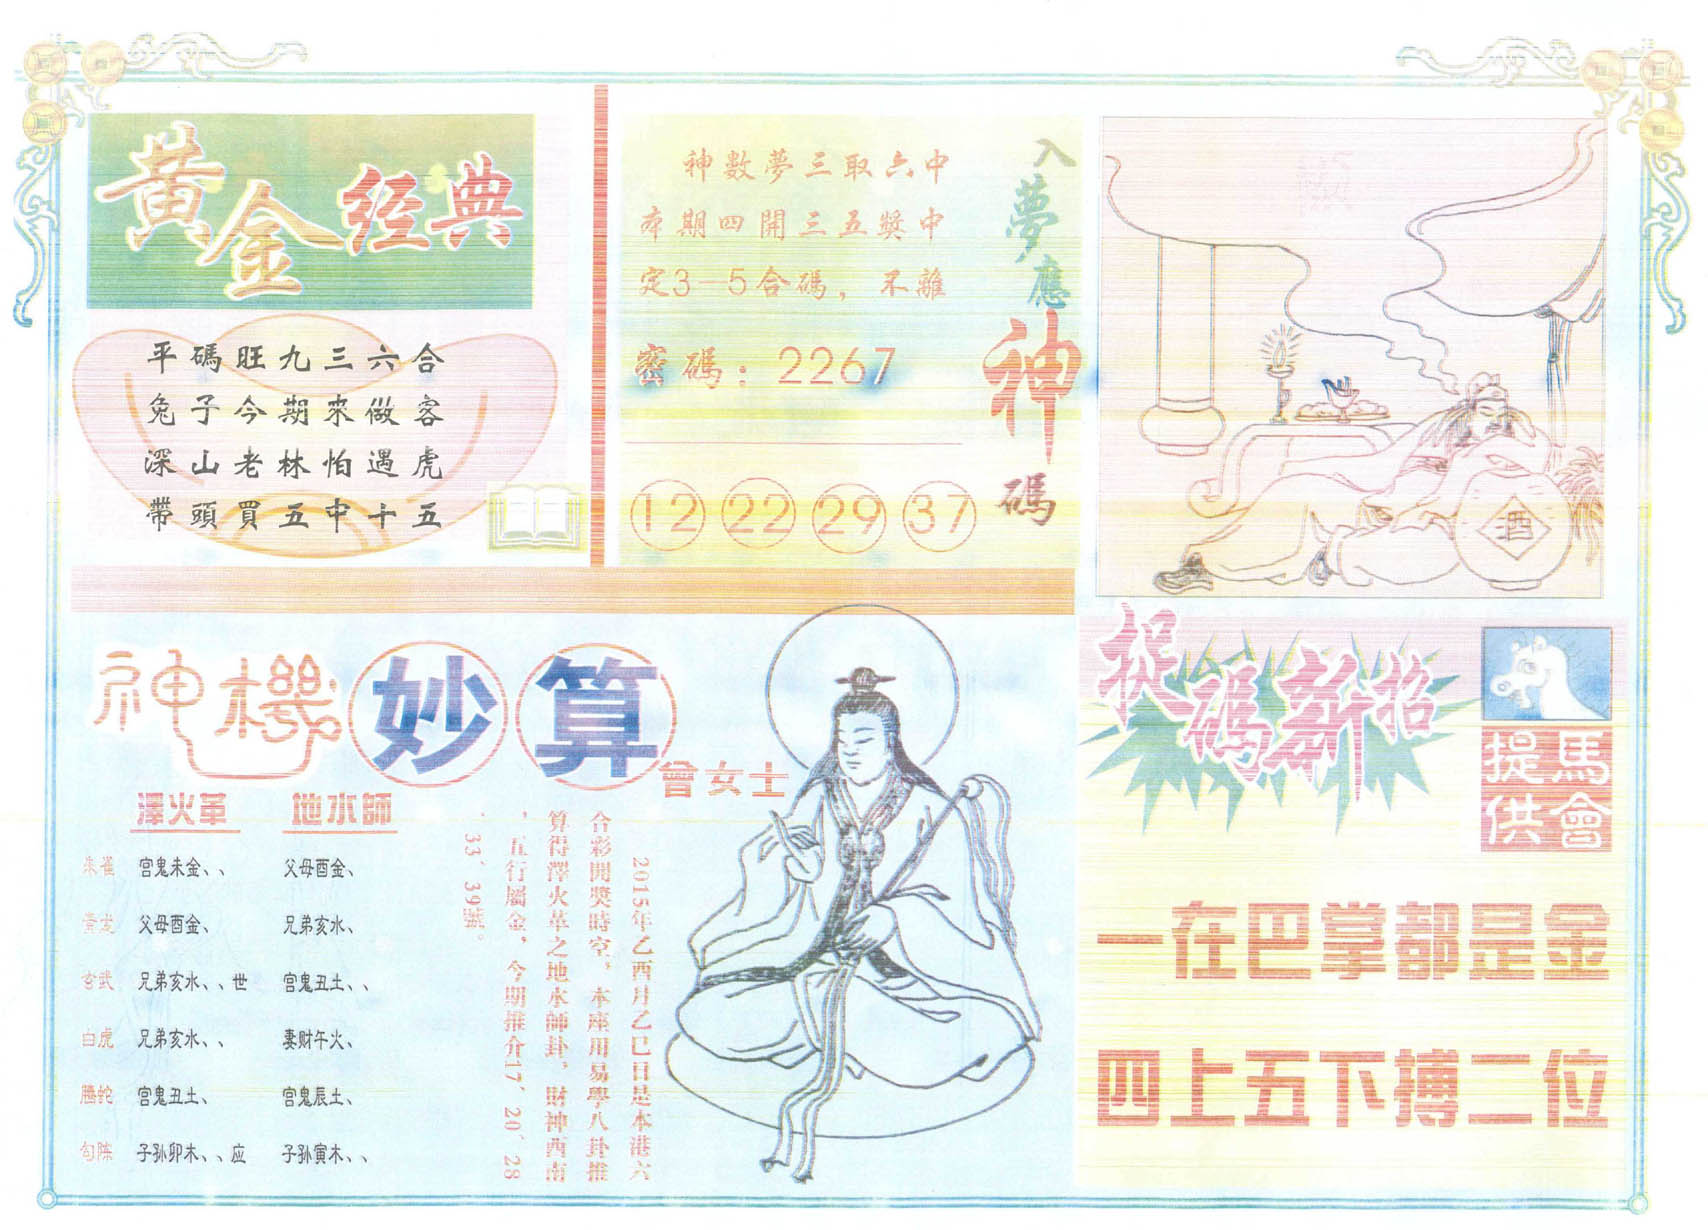 黃金经典
平碼旺九三六合
兔子今期來做客
深山老林怕遇虎
帶頭買五中十五
入夢應神碼
神數夢三取六中
本期四開三五獎中
定3－5合碼，不離
密碼：2267
12 22 29 37
酒
神機妙算
曾女士
澤火革 地水師
朱雀 宫鬼未金、、 父母酉金、
青龙 父母酉金、 兄弟亥水、
玄武 兄弟亥水、、世 宫鬼丑土、、
白虎 兄弟亥水、、 妻财午火、
螣蛇 宫鬼丑土、 宫鬼辰土、
勾陈 子孙卯木、、应 子孙寅木、、
2015年乙酉月乙巳日是本港六
合彩開獎時空，本座用易學八卦推
算得澤火革之地水師卦，財神西南
，五行屬金，今期推介17、20、28
、33、39號。
捉碼新招
馬會
提供
一在巴掌都是金
四上五下搏二位